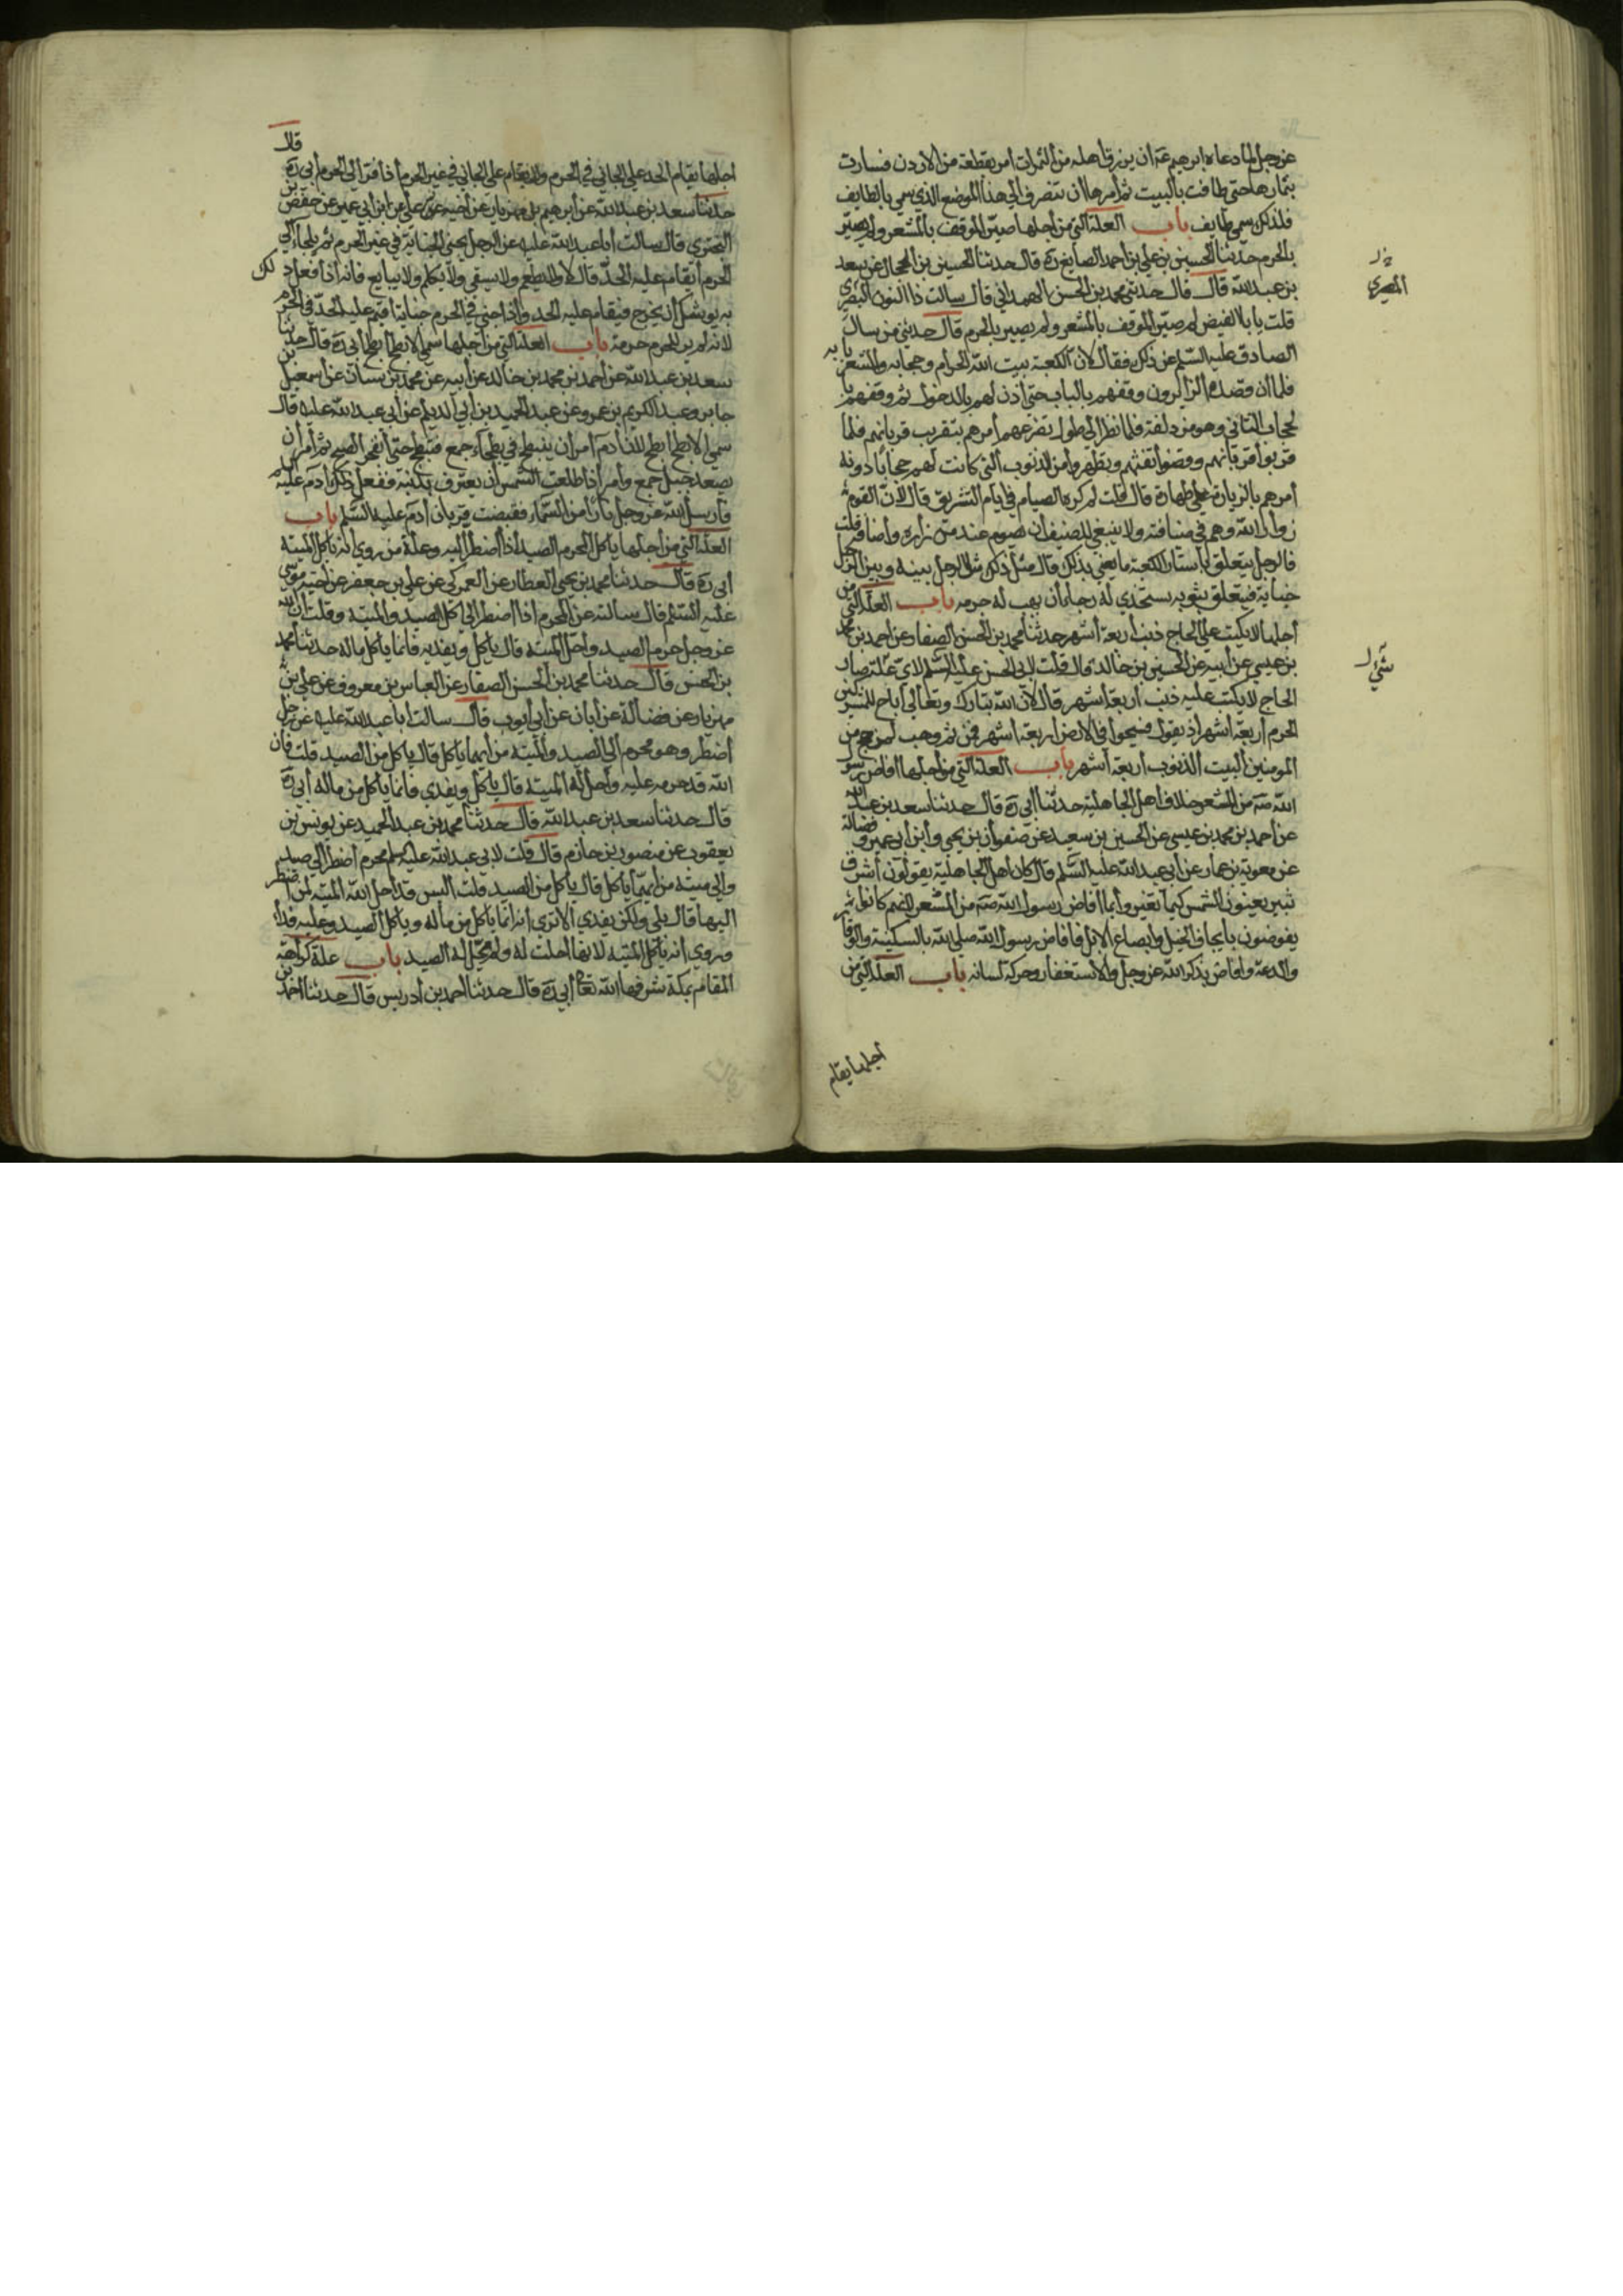 عز وجل لما دعاه ابرهيم عة ان يرزق اهله من الثمرات امر بقطعة من الاردن فسارت
بثمارها حتى طافت بالبيت ثم امرها ان تنصرف الي هذا الموضع الذي سمي بالطايف
فلذلك سمي طايف باب العلة التي من اجلها صيّر الموقف بالمشعر ولم يصيّر
بالحرم حدثنا الحسين بن علي بن احمد الصايغ ره قال حدثنا الحسين بن الحجال عن سعد
بن عبد الله قال قال حدثني محمد بن الحسن الهمداني قال سالت ذا النون البصري
المصري
قلت يا با الفيض لم صيّر الموقف بالمشعر ولم يصير بالحرم قال حدثني من سال
الصادق عليه السلم عن ذلك فقال لان الكعبة بيت الله الحرام وحجابه والمشعر بابه
فلما ان قصده الزايرون وقفهم بالباب حتى اذن لهم بالدخول ثم وقفهم با
لحجاب الثاني وهو مزدلفة فلما نظر الي طول تضرعهم امرهم بتقريب قربانهم فلما
قربوا قربانهم وقضوا تفثهم وتطهروا من الذنوب التي كانت لهم حجابا دونه
امرهم بالزيارة علي طهارة قال قلت لم كره الصيام في ايام التشريق قال لان القوم
زوار الله وهم في ضيافته ولا ينبغي للضيف ان يصوم عند من زاره واضافه قلت
فالرجل يتعلق باستار الكعبة ما يعني بذلك قال مثل ذلك مثل الرجل بينه وبين الرجل
جناية فيتعلق بثوبه يستخذي له رجاء ان يهب له جرمه باب العلة التي من
اجلها لا يكتب علي الحاج ذنب اربعة اشهر حدثنا محمد بن الحسن الصفار عن احمد بن محمد
بن عيسي عن ابيه عن الحسين بن خالد قال قلت لابي الحسن عليه السلم لاي علة صار
الحاج لا يكتب عليه ذنب اربعة اشهر قال لان الله تبارك وتعالي اباح للمشركين
الحرم اربعة اشهر اذ يقول فسيحوا في الارض اربعة اشهر فمن ثم وهب لمن حج من
المومنين البيت الذنوب اربعة اشهر باب العلة التي من اجلها افاض رسول
الله صة من المشعر خلاف اهل الجاهلية حدثنا ابي ره قال حدثنا سعد بن عبد الله
عن احمد بن محمد بن عيسى عن الحسين بن سعيد عن صفوان بن يحيي وابن ابي عمير وفضالة
عن معوية بن عمار عن ابي عبد الله عليه السلم قال كان اهل الجاهلية يقولون اشرق
ثبير يعنون الشمس كيما نغير وانما افاض رسول الله صة من المشعر لانهم كانوا
يفيضون بايجاف الخيل وايضاع الابل فافاض رسول الله صلي الله بالسكينة والوقار
والدعة وافاض بذكر الله عز وجل والاستغفار وحركة لسانه باب العلة التي من
اجلها يقام
قال
اجلها يقام الحد علي الجاني في الحرم ولا يقام علي الجاني في غير الحرم اذا فر الي الحرم ابي ره
حدثنا سعد بن عبد الله عن ابرهيم بن مهزيار عن اخيه علي عن ابن ابي عمير عن حفص بن
البختري قال سالت ابا عبد الله عليه عن الرجل يجني الجناية في غير الحرم ثم يلجاء الي
الحرم ايقام عليه الحد قال لا ولا يطعم ولا يسقى ولا يكلم ولا يبايع فانه اذا فعل ذلك
به يوشك ان يخرج فيقام عليه الحد واذا جني في الحرم جناية اقيم عليه الحد في الحرم
لانه لم ير للحرم حرمة باب العلة التي من اجلها سمي الابطح ابطحا ابي ره قال حدثنا
سعد بن عبد الله عن احمد بن محمد بن خالد عن ابيه عن محمد بن سنان عن اسمعيل بن
جابر وعبد الكريم بن عمرو عن عبد الحميد بن ابي الديلم عن ابي عبد الله عليه قال
سمي الابطح ابطح لان ادم امر ان ينبطح في بطحاء جمع فتبطح حتى انفجر الصبح ثم امر ان
يصعد جبل جمع وامر اذا طلعت الشمس ان يعترف بذنبه ففعل ذلك ادم عليه
فارسل الله عز وجل نارا من السماء فقبضت قربان ادم عليه السلم باب
العلة التي من اجلها ياكل المحرم الصيد اذا اضطر اليه وعلة من روي انه ياكل الميتة
ابي ره قال حدثنا محمد بن يحيي العطار عن العمركي عن علي بن جعفر عن اخيه موسى
عليه السلم قال سالته عن المحرم اذا اضطر الي اكل الصيد والميتة وقلت ان الله
عز وجل حرم الصيد واحل الميتة قال ياكل ويفديه فانما ياكل ماله حدثنا محمد
بن الحسن قال حدثنا محمد بن الحسن الصفار عن العباس بن معروف عن علي بن
مهزيار عن فضالة عن ابان عن ابي ايوب قال سالت ابا عبد الله عليه عن رجل
اضطر وهو محرم الي الصيد والميتة من ايهما ياكل قال ياكل من الصيد قلت فان
الله قد حرمه عليه واحل له الميتة قال ياكل ويفدي فانما ياكل من ماله ابي ره
قال حدثنا سعد بن عبد الله قال حدثنا محمد بن عبد الحميد عن يونس بن
يعقوب عن منصور بن حازم قال قلت لابي عبد الله عليه محرم اضطر الي صيد
والي ميتة من ايهما ياكل قال ياكل من الصيد قلت اليس قد احل الله الميتة لمن اضطر
اليها قال بلي ولكن يفدي الا تري انه انما ياكل من ماله وياكل الصيد وعليه فداء
وروي انه ياكل الميتة لانها احلت له ولم يحل له الصيد باب علة كراهة
المقام بمكة شرفها الله تعالي ابي ره قال حدثنا احمد بن ادريس قال حدثنا احمد بن